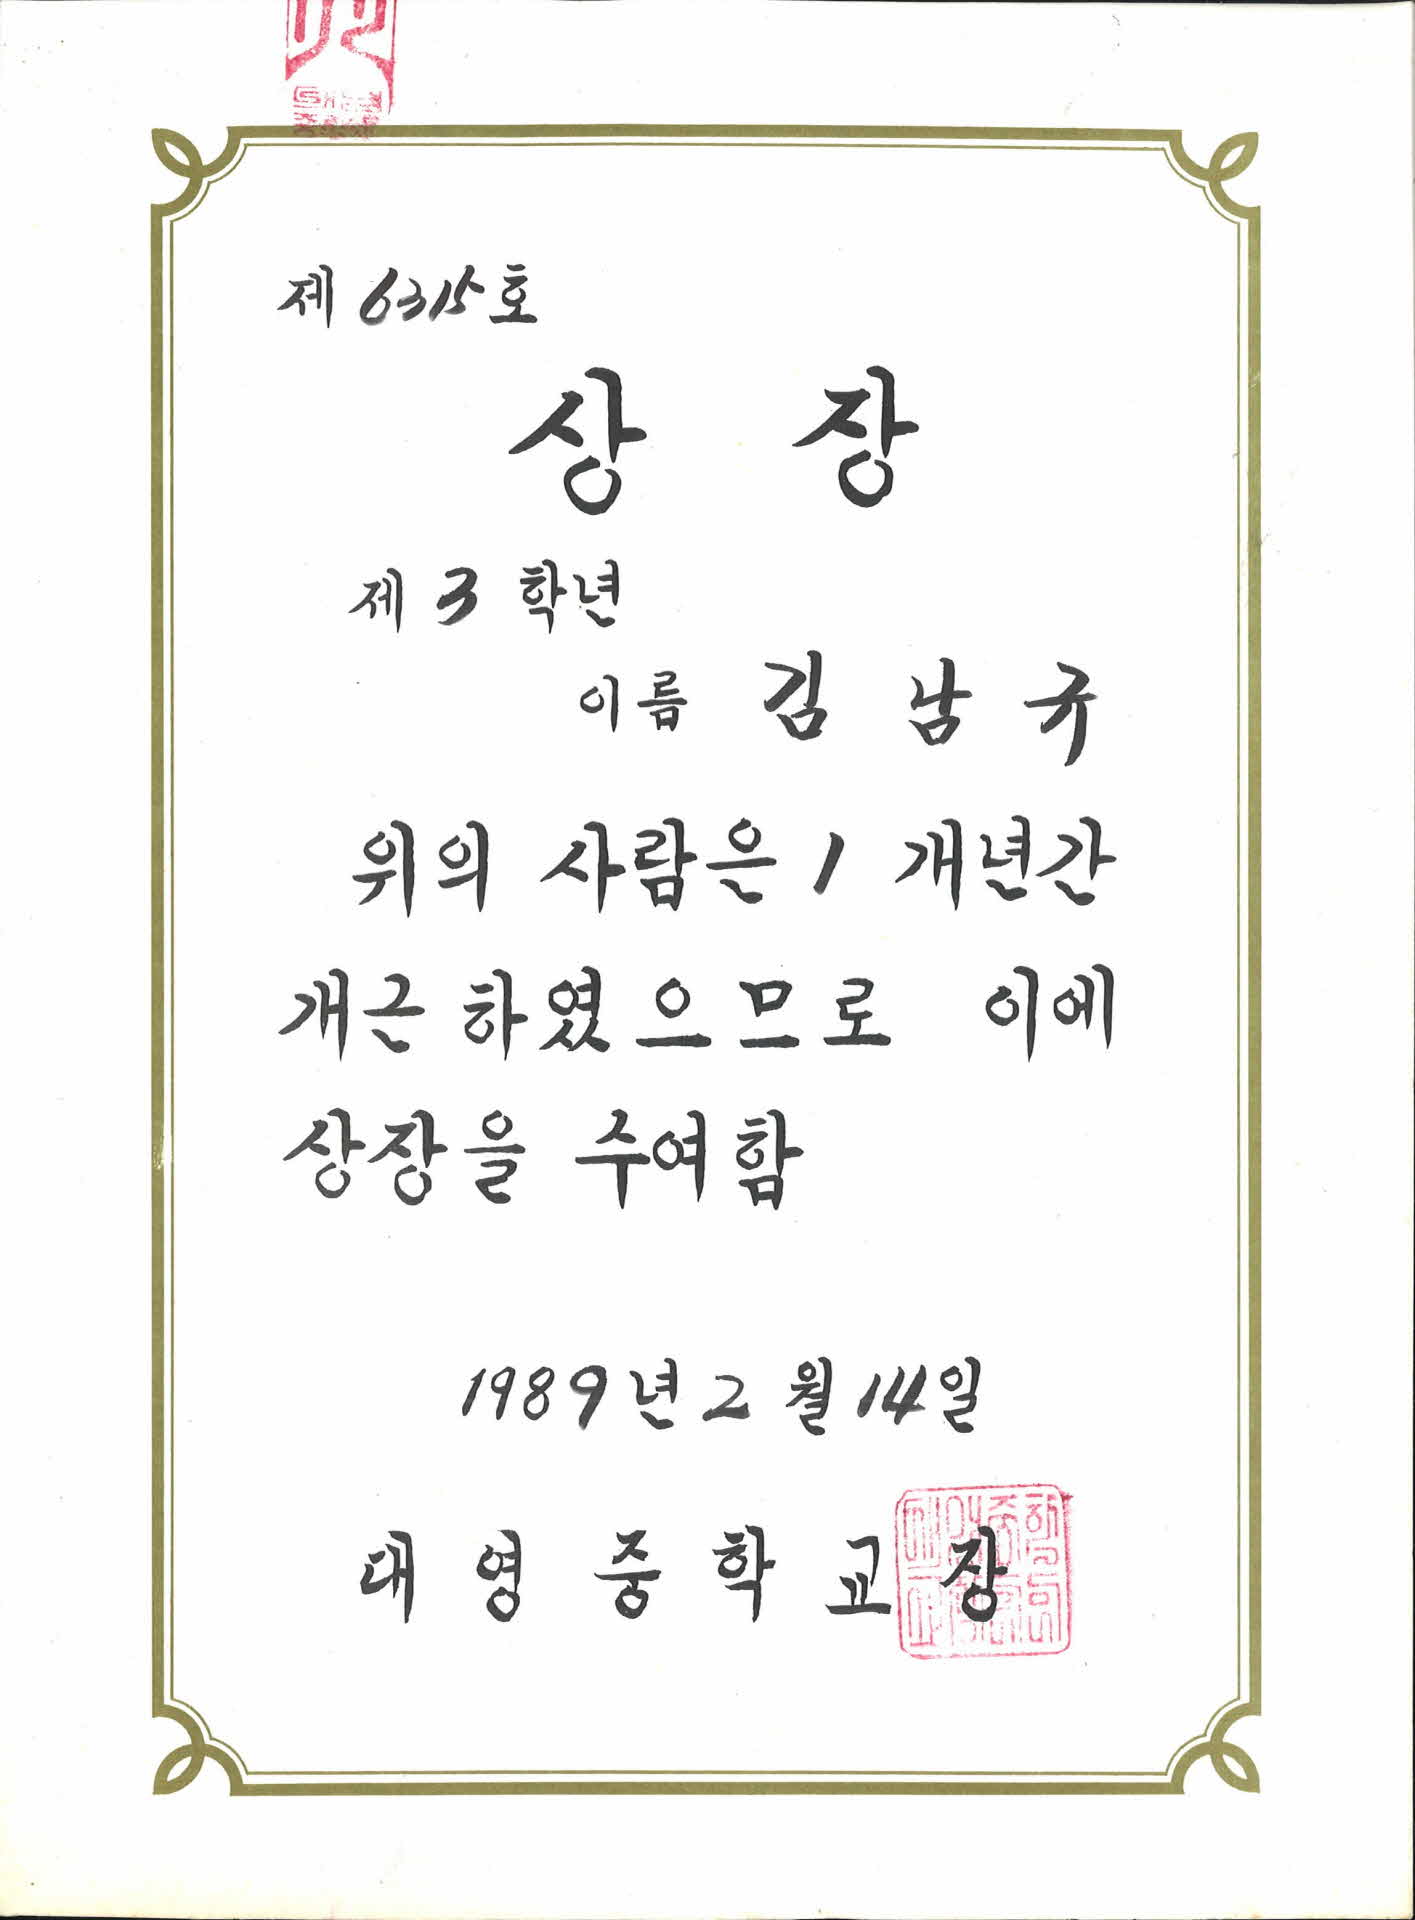 제 6315 호
상 장
제 3 학년
이름 김 남 규
위의 사람은 1 개년간
개근 하였으므로 이에
상장을 수여함
1989년 2 월 14일
대 영 중 학 교 장